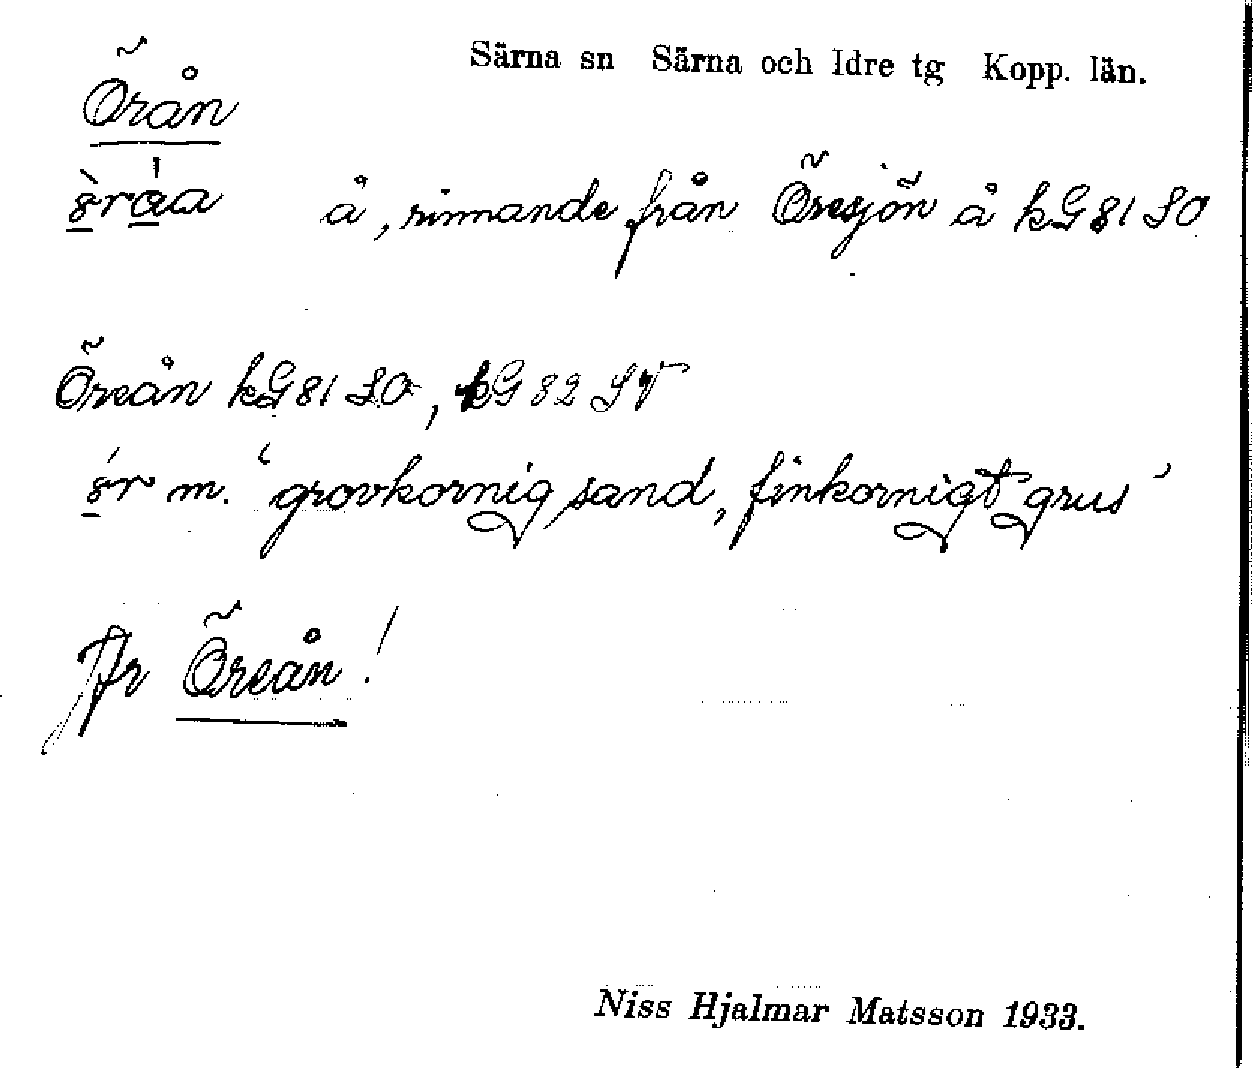 Särna sn Särna och Idre tg Kopp. län.
Örån
å, rinnande från Öresjön å kG81 SO
Öreån kG81 SO, kG82 SV
m. ‘grovkornig sand, finkornigt grus’
Jfr Öreån!
Niss Hjalmar Matsson 1933.